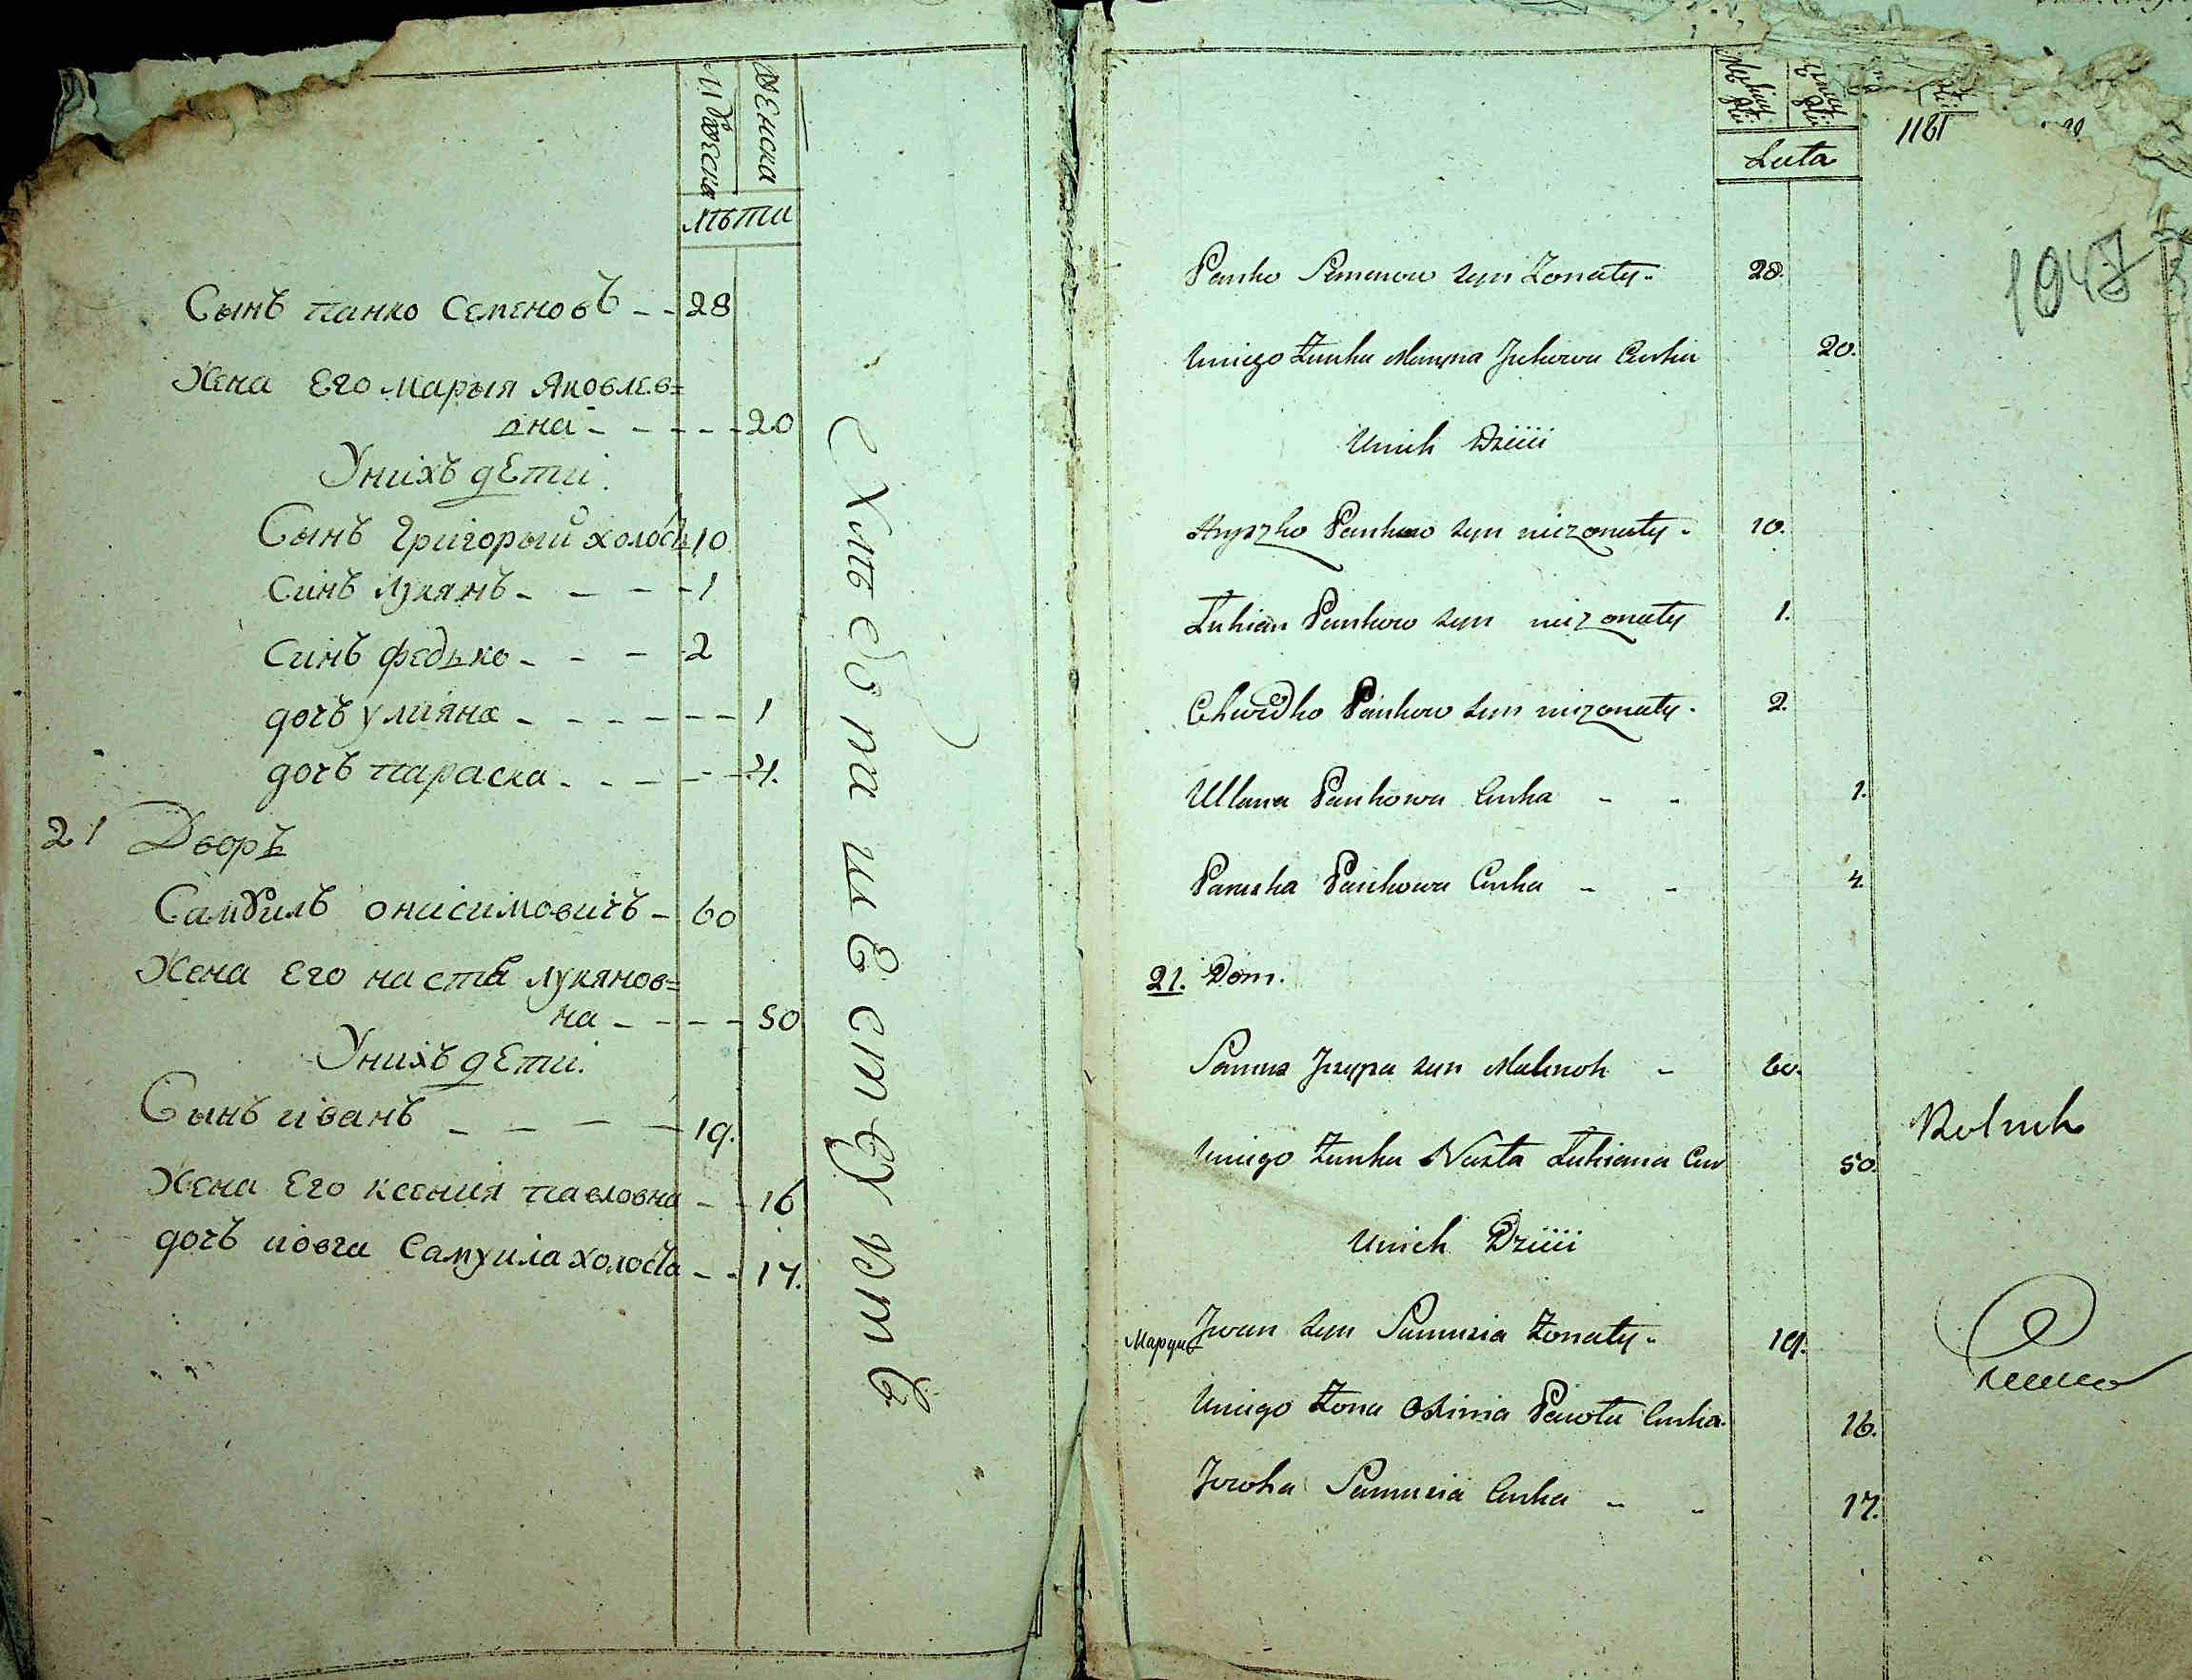 Женска
лѣти
Сынъ панко Семеновъ - - 28
Жена Его марыя Яковлев=
вна - - - - - 20
Унихъ дЕти.
Сынъ Григорый холостъ 10
Синъ Лукянъ - - - - 1
Синъ федько - - - 2
дочъ улияна - - - - - - - 1
дочъ параска - - - - - 4.
21 Дворъ
Самуилъ онисимовичъ - 60
Жена Его настя лукянов=
на - - - - 50
Унихъ дЕти.
Сынъ иванъ - - - - 19.
Жена Его ксения павловна - - 16
дочъ иовга Самуила холоста - - 17.
Схлѣбопашествуютъ
Luta
1181
1047
Panko Semenow syn Zonaty. 28.
Uniego Zonka Maryna Jakowa Curka 20.
Unich Dzieci
Hryszko Pankow syn niezonaty - 10.
Łukian Pankow syn niezonaty 1.
Chwedko Pankow syn niezonaty - 2.
Ullana Pankowa Curka - - 1.
Paraska Pankowa Curka - - 4.
21. Dom.
syn - 60.
Uniego Zonka Nasta Łukiana Cur 50.
Rolnik
Unich Dzieci
Jwan syn Samusia Zonaty. 19.
Uniego Zona Oxinia Pawła Curka. 16.
Jowha Samusia Curka - - 17.